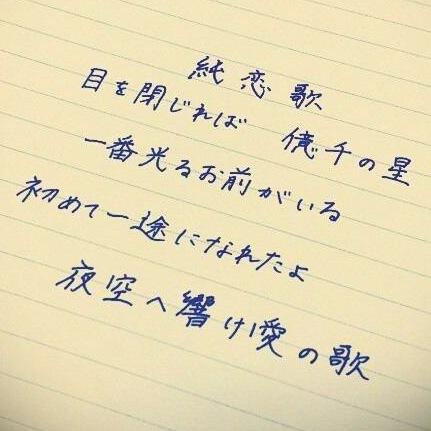 純恋歌
目を閉じれば 億千の星
一番光るお前がいる
初めて一途になれたよ
夜空へ響け愛の歌